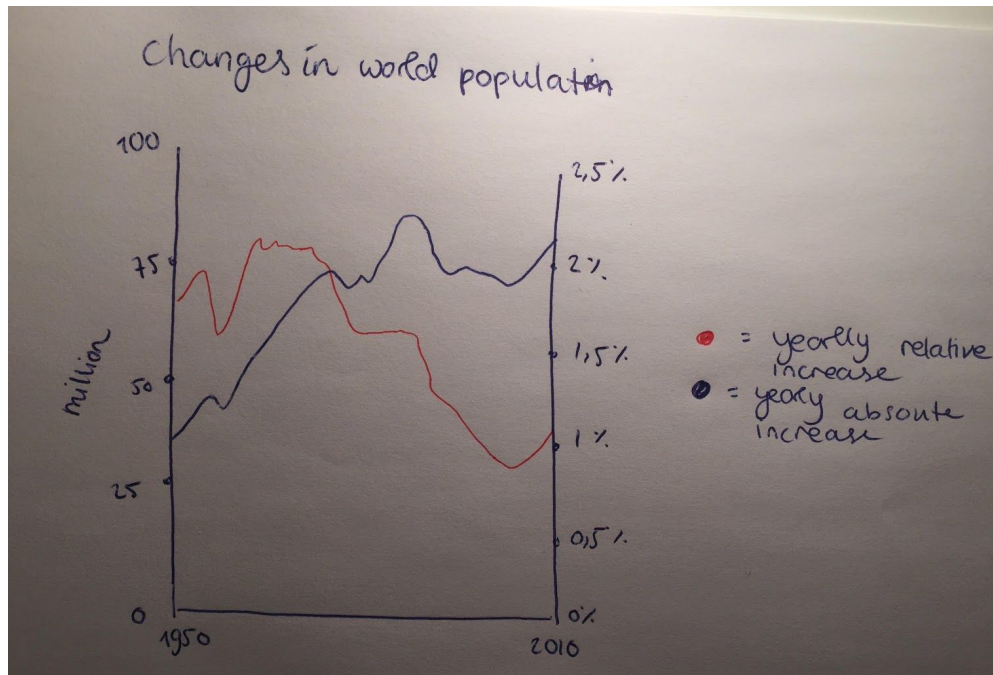 Changes in world population
100
75
50
25
0
million
2,5%
2%
1,5%
1%
0,5%
0%
1950
2010
= yearlly relative
increase
= yearly absoute
increase